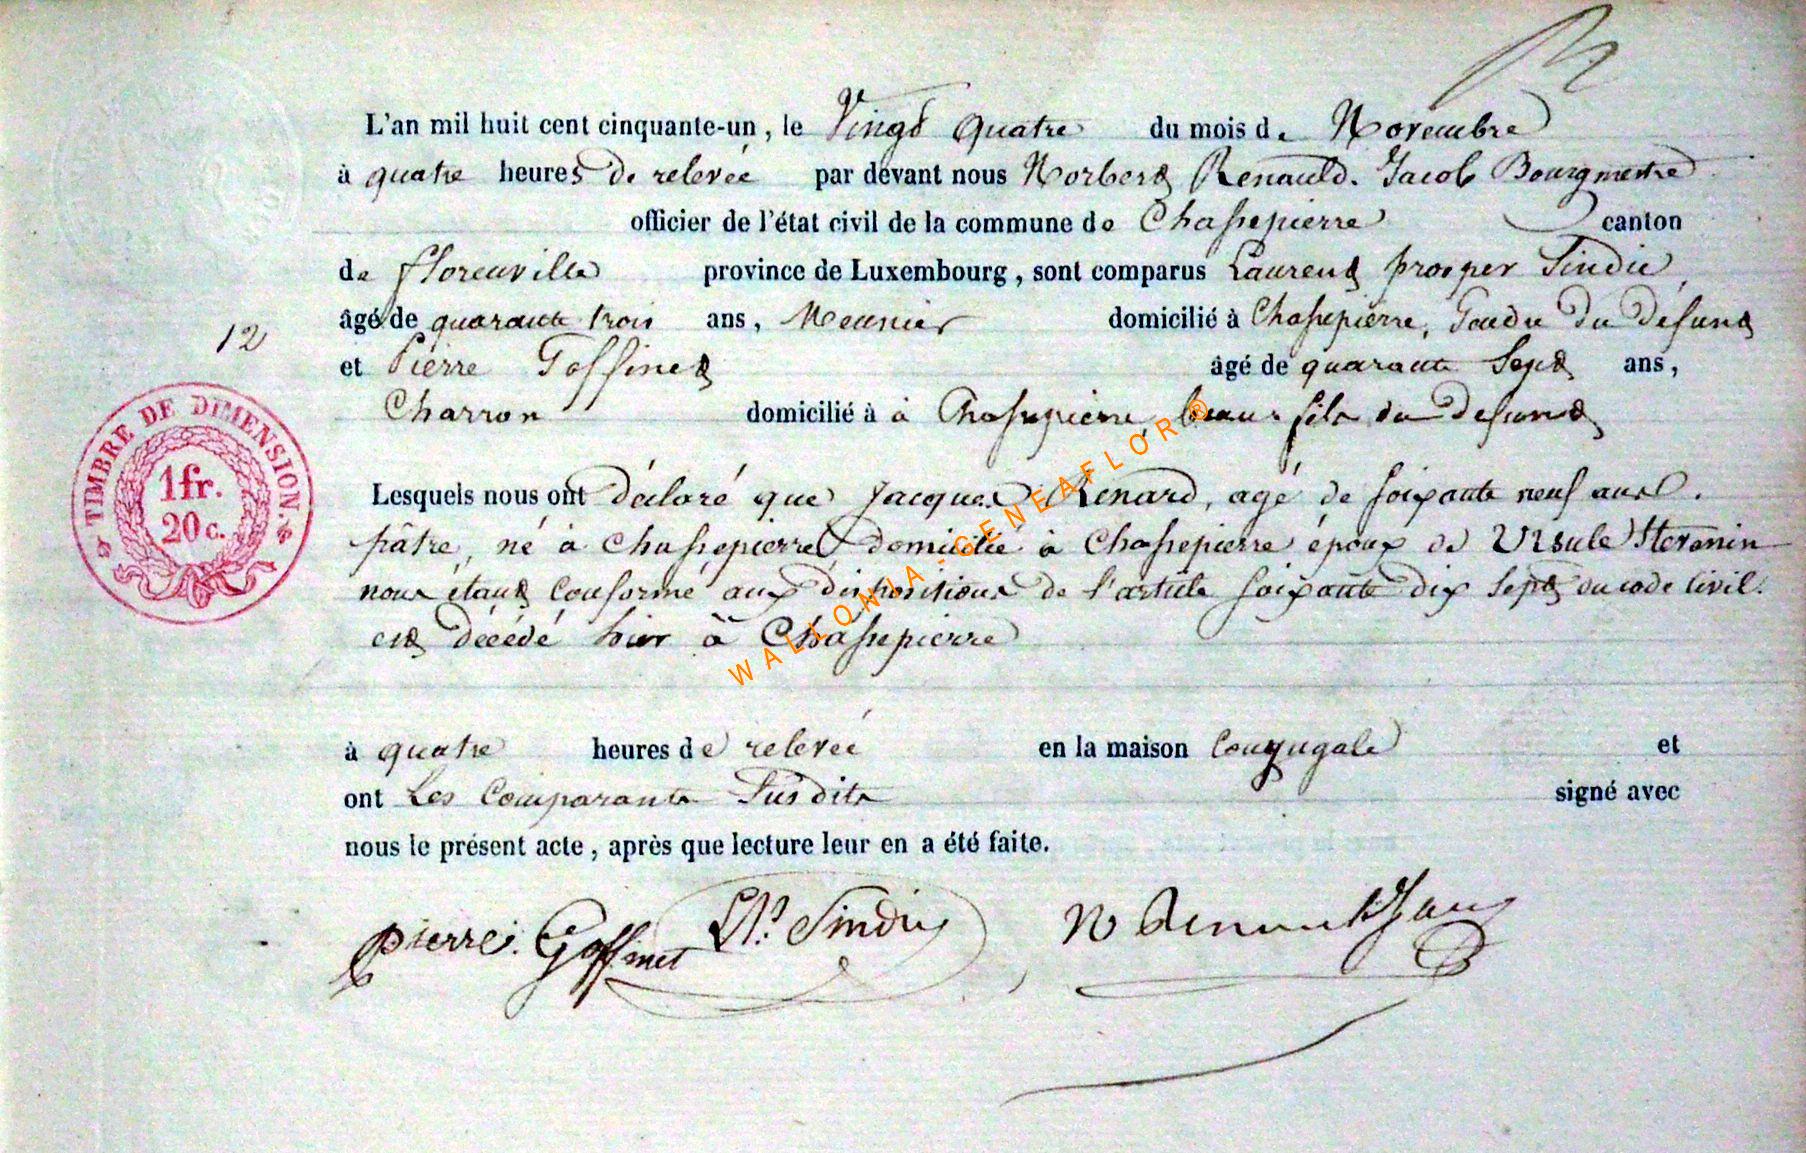 L'an mil huit cent cinquante-un, le Vingt Quatre du mois de Novembre
à quatre heures de relevée par devant nous Norbert Renauld. Jacob Bourgmestre
officier de l'état civil de la commune de Chassepierre canton
de florenville province de Luxembourg, sont comparus Laurent prosper Sindic
12
âgé de quarante trois ans, Meunier domicilié à Chassepierre, Gendre du défunt
et Pierre Goffinet âgé de quarante Sept ans,
Charron domicilié à à Chassepierre, beau-fils du defunt
TIMBRE DE DIMENSION.
1fr.
20c.
Lesquels nous ont déclaré que Jacques Renard, agé de soixante neuf ans.
pâtre, né à Chassepierre domicilié à Chassepierre époux de Ursule
nous étant conformé aux dispositions de l'article soixante dix sept du code civil.
est décédé hier à Chassepierre
WALLONIA-GENEAFLOR®
à quatre heures de relevée en la maison conjugale et
ont Les Comparants Susdits signé avec
nous le présent acte, après que lecture leur en a été faite.
Pierre. Goffinet LP. Sindic N Renauld Jacob